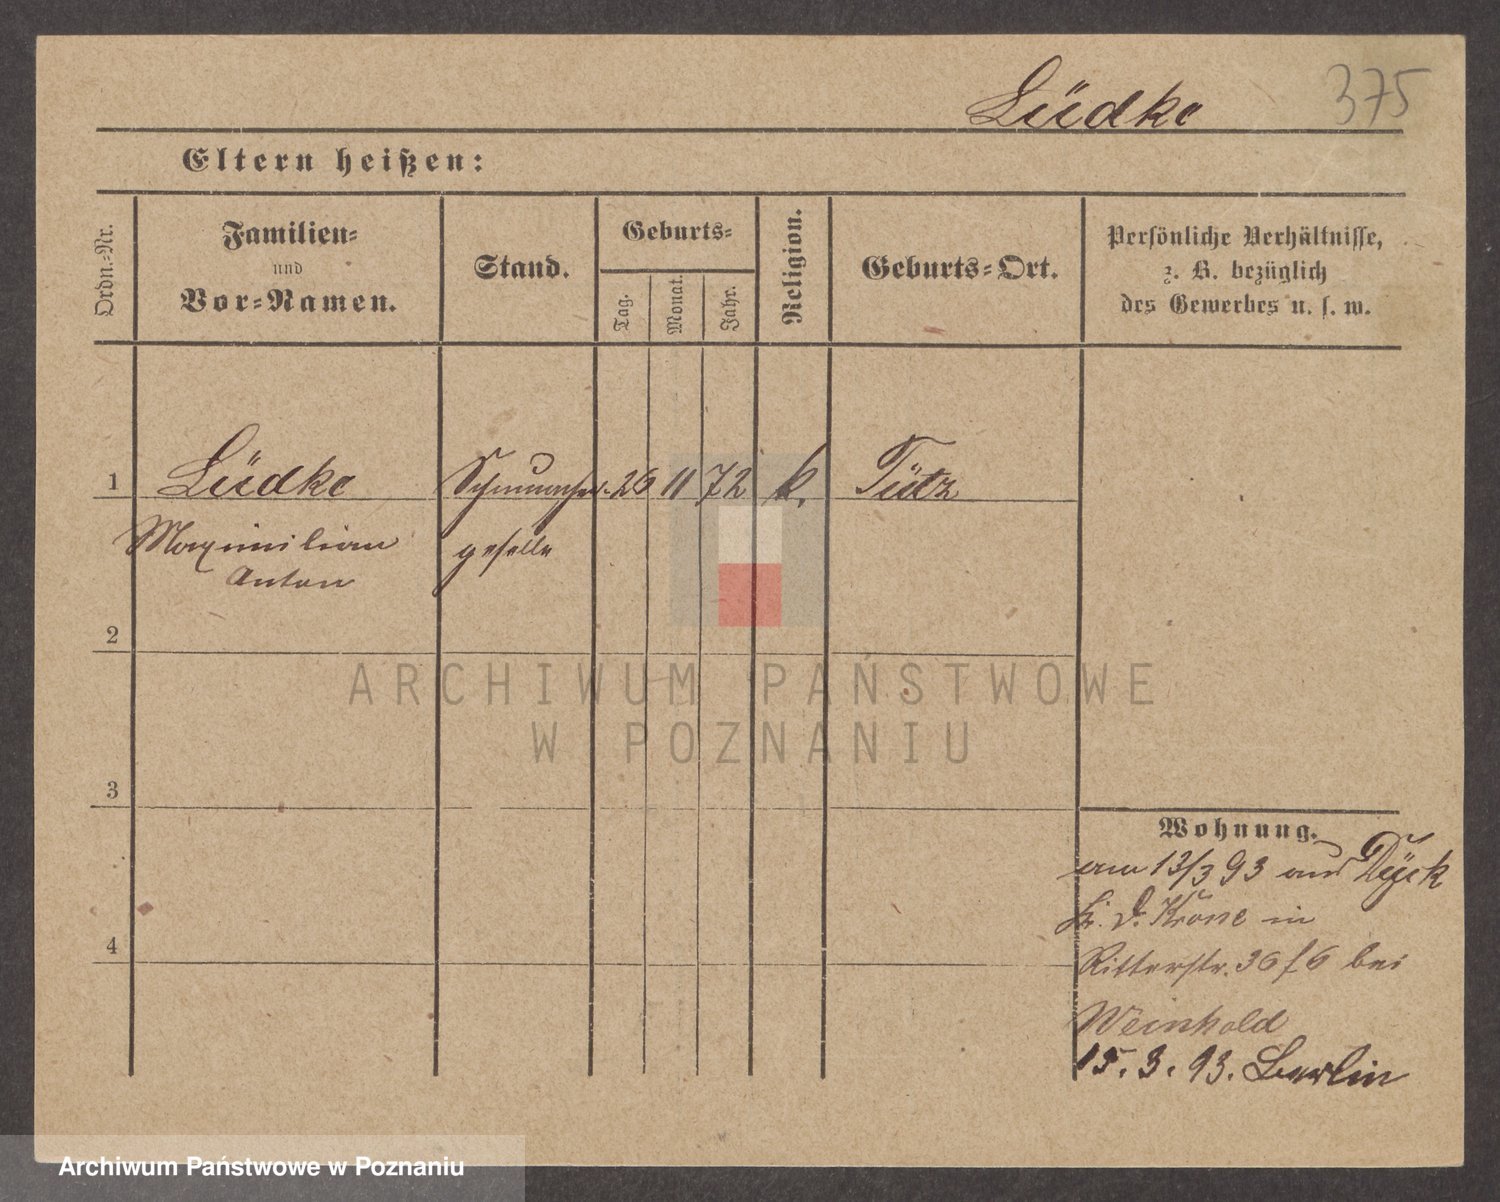 Lüdke 375
Eltern heißen:
Ordn.-Nr.
Familien-
und
Vor-Namen.
Stand.
Geburts-
Tag.
Monat.
Jahr.
Religion.
Geburts-Ort.
Persönliche Verhältnisse,
z. B. bezüglich
des Gewerbes u. s. w.
1 Lüdke 26 11 72 k. Tütz
Maximilian geselle
Anton
2
ARCHIWUM PAŃSTWOWE
W POZNANIU
3
Wohnung.
am 13/3 93 aus Dyck
Kr. D. Krone in
Ritterstr. 36 bei
4
Weinhold
15. 3. 93. Berlin
Archiwum Państwowe w Poznaniu